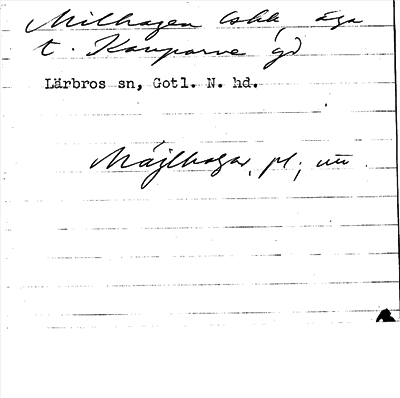 Milhagen bskk, äga
t. Kauparve gd
Lärbros sn, Gotl. N. hd.
Måjlhagar, pl;